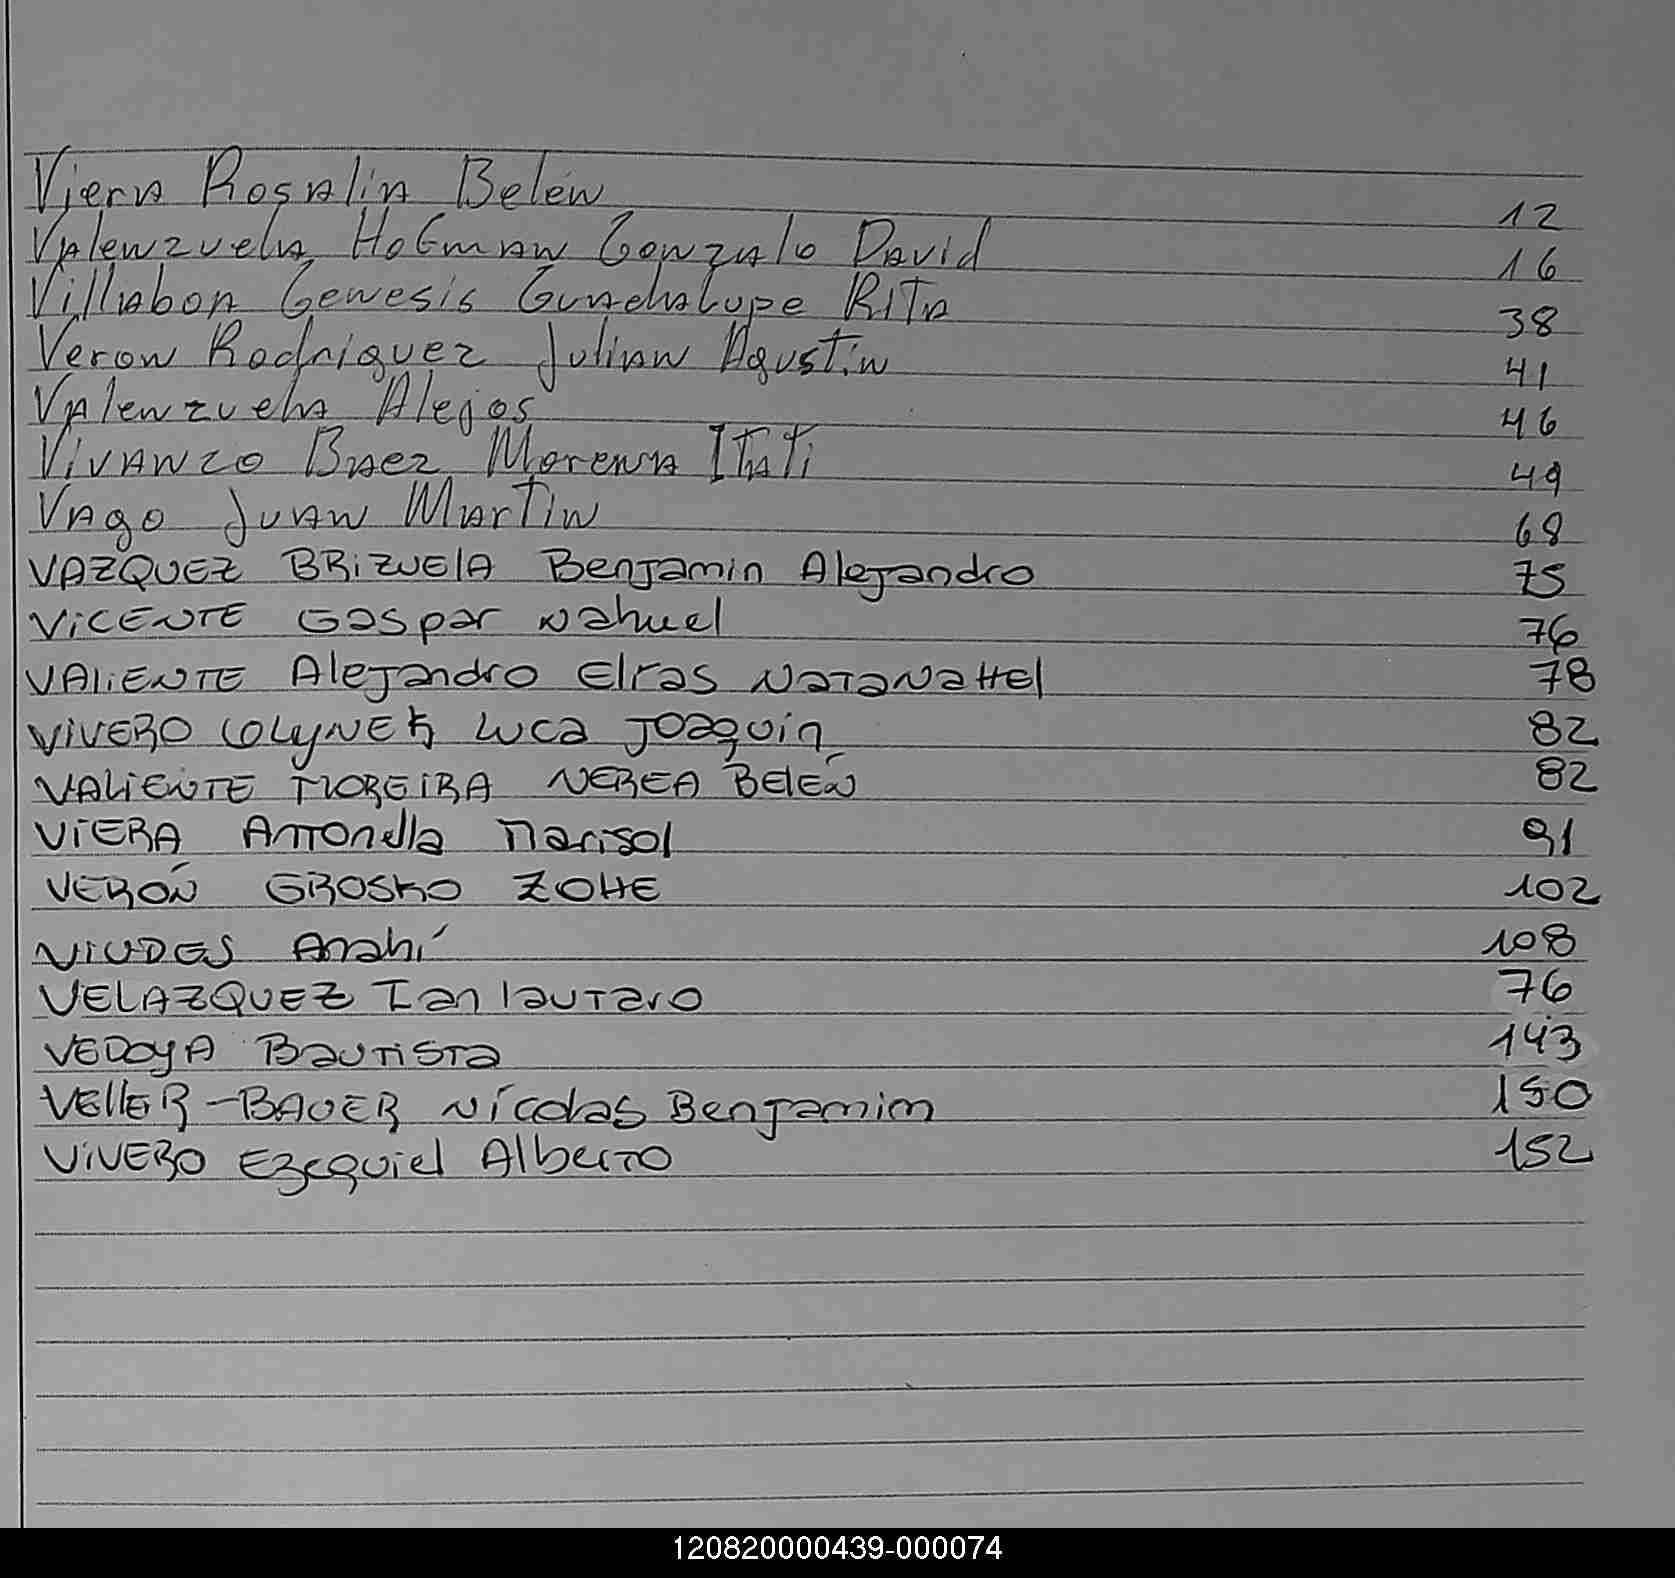 Viera Rosalia Belén 12
Valenzuela Hofman Gonzalo David 16
Villaboa Genesis Guadalupe Rita 38
Veron Rodriguez Julian Agustin 41
Valenzuela Alejos 46
Vivanco Baez Morena Itati 49
Vago Juan Martin 68
VAZQUEZ BRIZUELA Benjamin Alejandro 75
VICENTE Gaspar Nahuel 76
VALIENTE Alejandro Elias NataNaHel 78
VIVERO OLYNEK Luca Joaquin 82
VALIENTE MOREIRA NEREA BELÉN 82
VIERA Antonella Marisol 91
VERÓN GROSKO ZOHE 102
VIUDES Anahí 108
VELAZQUEZ Ian lautaro 76
VEDOYA Bautista 143
VELLER-BAUER Nícolas Benjamim 150
VIVERO Ezequiel Alberto 152
120820000439-000074